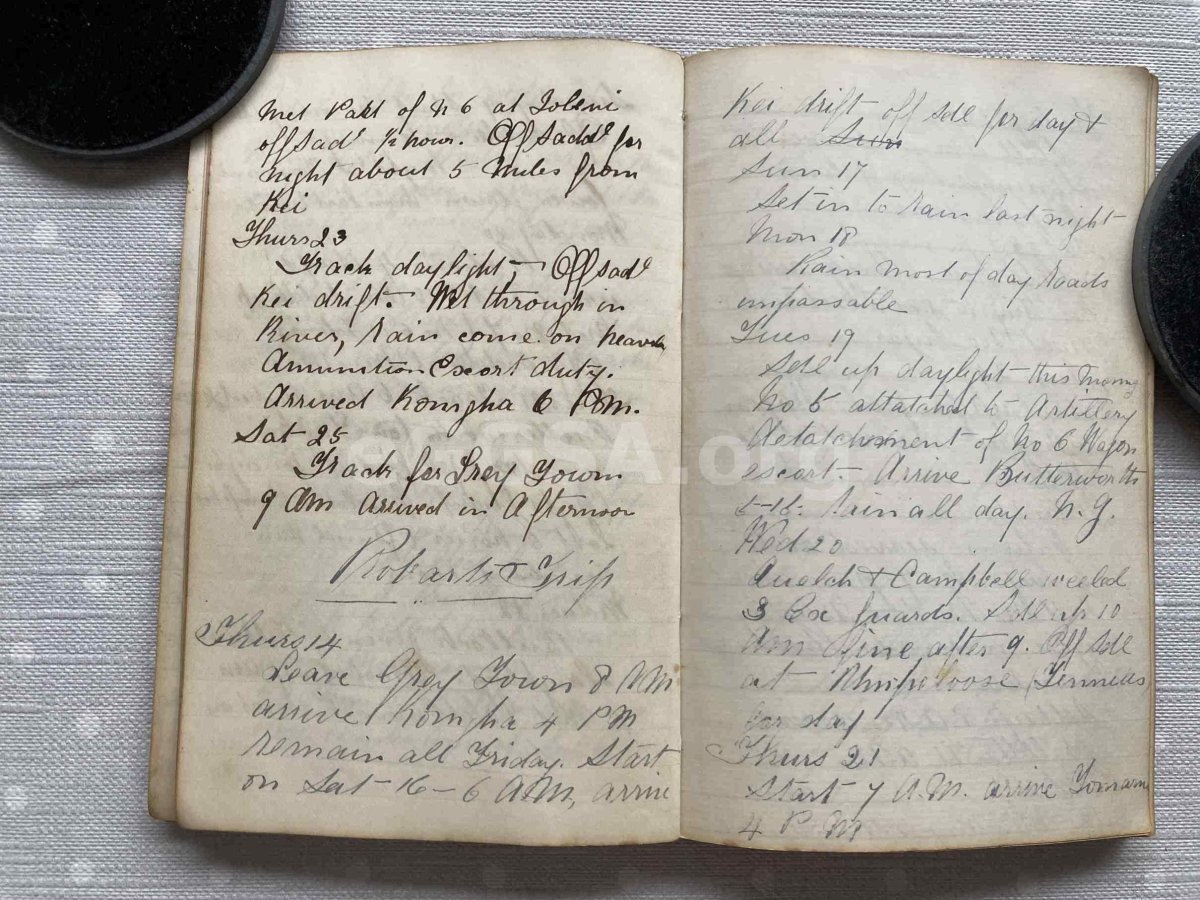 Met Part of N 6 at Toleni
offsadd ½ hour. Offsadd for
night about 5 Miles from
Kei
Thurs 23
Track daylight, Offsadd
Kei drift. Wet through in
River, rain come on heavily
Amunition Escort duty.
Arrived Komgha 6 P.M.
Sat 25
Track for Grey Town
9 AM arrived in Afternoon
Robarts Trip
Thurs 14
Leave Grey Town 8 AM
arrive Komgha 4 PM
remain all Friday. Start
on Sat 16 – 6 A.M, arrive
Kei drift off sdl for day &
all Sun
Sun 17
Set in to rain last night
Mon 18
Rain most of day roads
impassable
Tues 19
Sdl up daylight this Morng
No 5 attatched to Artillery
detatchment of No 6 Wagon
escort. Arrive Butterworth
5-15. rain all day. N.G.
Wed 20
Quelch & Campbell
3 Ex guards. Sdl up 10
Am fine after 9. Off sdl
at
for day
Thurs 21
Start 7 A.M. arrive
4 P M
SA.org